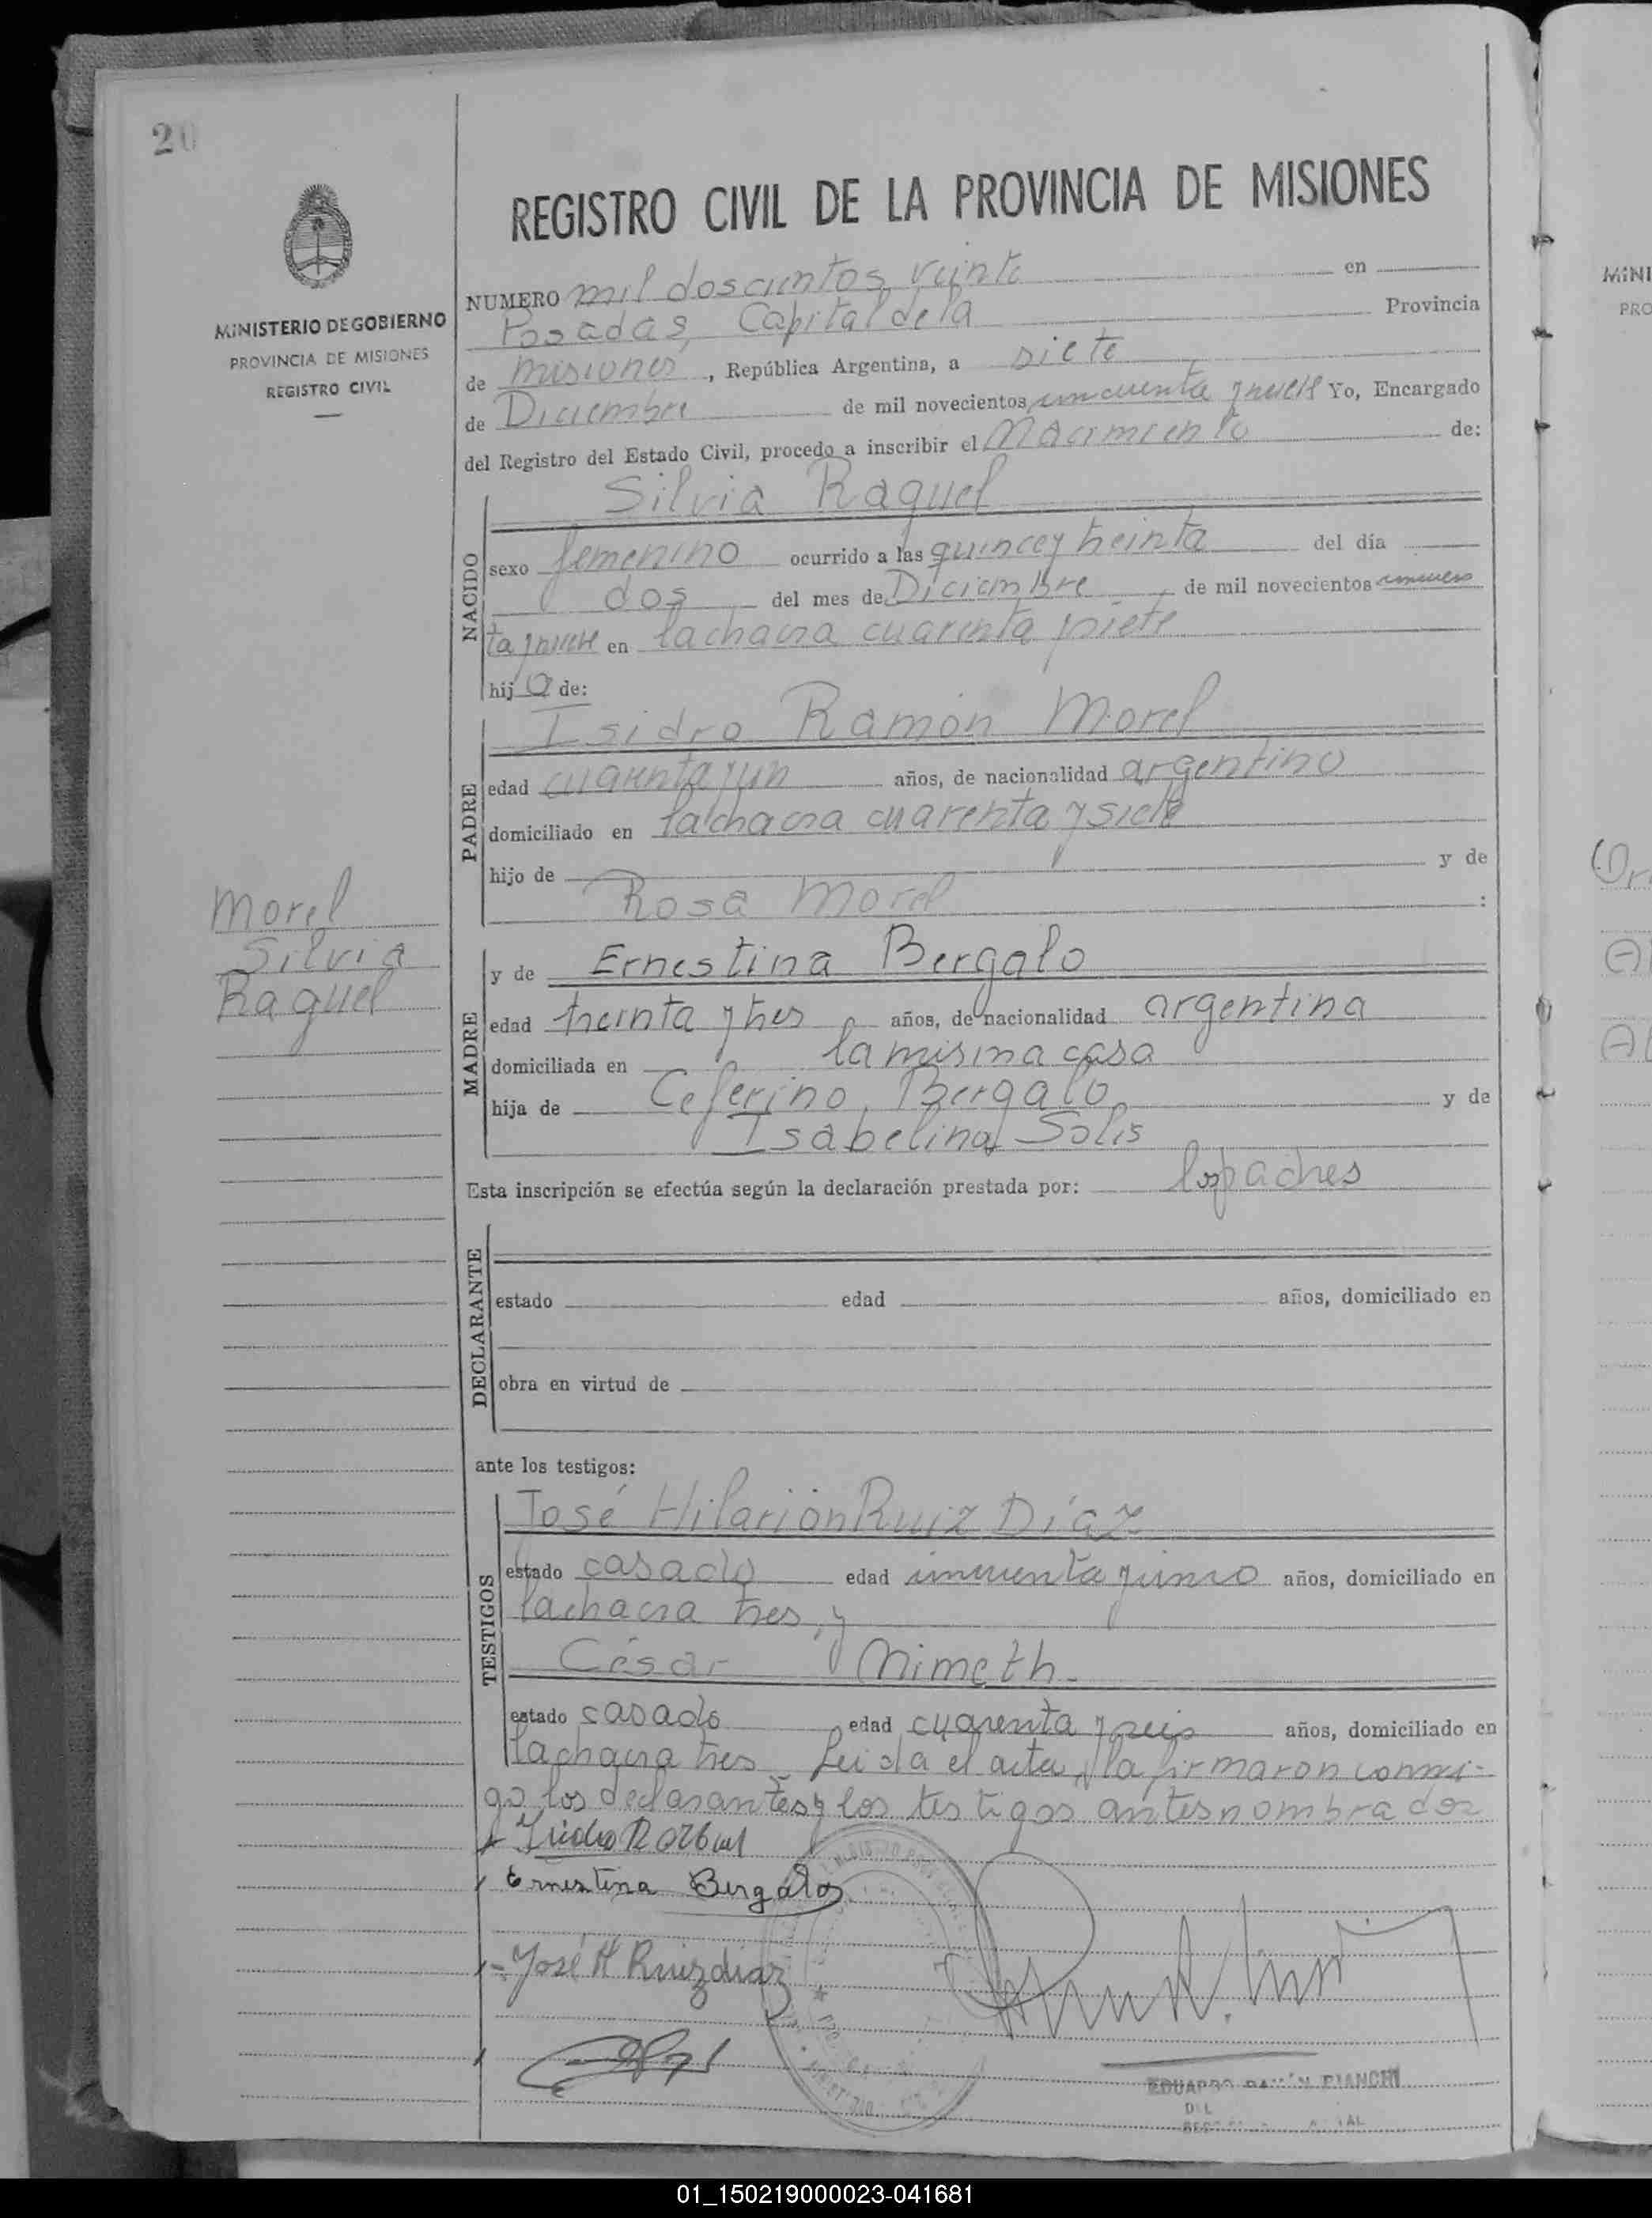 20
REGISTRO CIVIL DE LA PROVINCIA DE MISIONES
MINISTERIO DE GOBIERNO
PROVINCIA DE MISIONES
REGISTRO CIVIL
NUMERO mil doscientos veinte en
Posadas, Capital de la Provincia
de misiones, República Argentina, a siete
de Diciembre de mil novecientos cincuenta y nueve Yo, Encargado
del Registro del Estado Civil, procedo a inscribir el Nacimiento de:
NACIDO
Silvia Raquel
sexo femenino ocurrido a las quince y treinta del día
dos del mes de Diciembre de mil novecientos cincuen
ta y nueve en la chacra cuarenta y siete
hija de:
PADRE
Isidro Ramón Morel
edad cuarenta y un años, de nacionalidad argentino
domiciliado en la chacra cuarenta y siete
hijo de y de
Rosa Morel :
Morel
Silvia
Raquel
MADRE
y de Ernestina Bergalo
edad treinta y tres años, de nacionalidad argentina
domiciliada en la misma casa
hija de Ceferino Bergalo y de
Isabelina Solis
Esta inscripción se efectúa según la declaración prestada por: los padres
DECLARANTE
estado edad años, domiciliado en
obra en virtud de
ante los testigos:
TESTIGOS
José Hilarión Ruiz Díaz
estado casado edad cincuenta y cinco años, domiciliado en
la chacra tres, y
César Nimeth
estado casado edad cuarenta y seis años, domiciliado en
la chacra tres. Leida el acta, la firmaron conmi-
go los declarantes y los testigos antes nombrados
Ernestina Bergalo
José H Ruizdiaz
EDUARDO RAMÓN BIANCHI
01_150219000023-041681